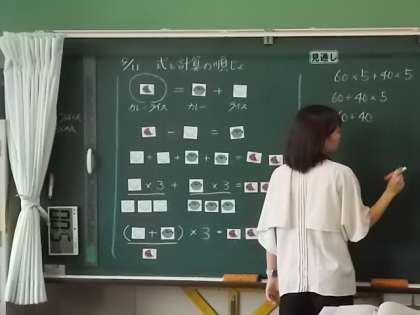 6/11 式と計算の順じょ
= +
カレーライス カレー ライス
- =
+ + + =
× 3 + × 3 =
( + ) × 3 =
見通し
60×5+40×5
60+40×5
60+40